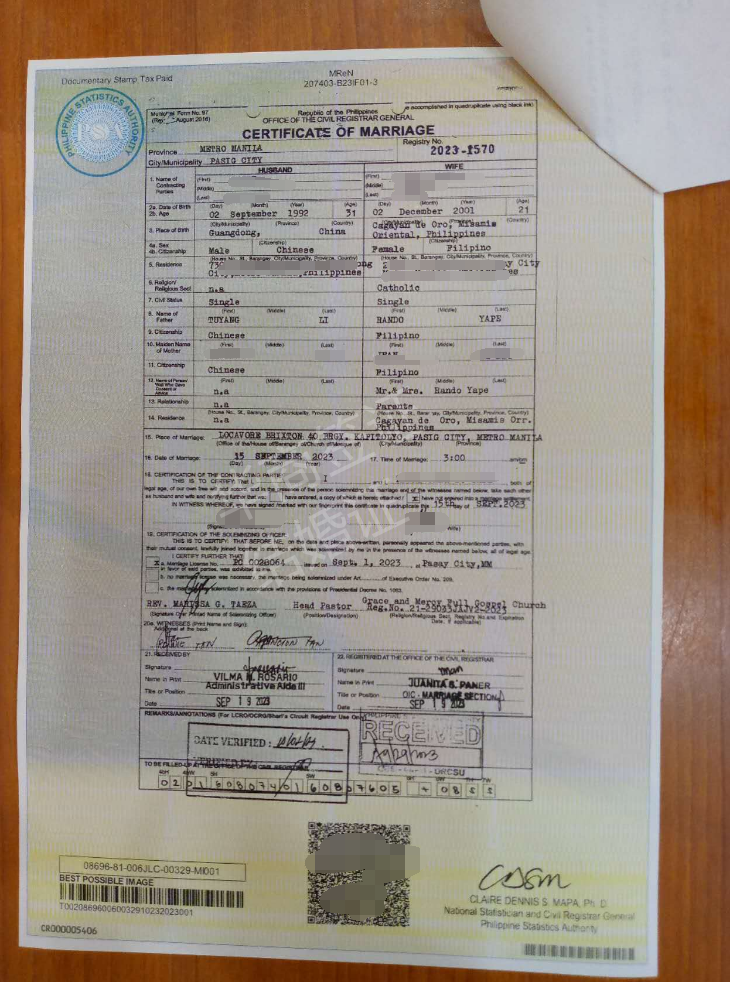 Documentary Stamp Tax Paid
MReN
207403-B23IF01-3
PHILIPPINE STATISTICS AUTHORITY
Municipal Form No. 97
(Rev. August 2016)
Republic of the Philippines
OFFICE OF THE CIVIL REGISTRAR GENERAL
accomplished in quadruplicate using black ink
CERTIFICATE OF MARRIAGE
Province METRO MANILA
Registry No.
2023-1570
City/Municipality PASIG CITY
HUSBAND WIFE
1. Name of Contracting Parties
(First) (First)
(Middle) (Middle)
(Last) (Last)
2a. Date of Birth
2b. Age
(Day) (Month) (Year) (Age) (Day) (Month) (Year) (Age)
02 September 1992 31 02 December 2001 21
3. Place of Birth
(City/Municipality) (Province) (Country) (City/Municipality) (Province) (Country)
Guangdong, China Cagayan de Oro, Misamis Oriental, Philippines
4a. Sex
4b. Citizenship
(Citizenship) (Citizenship)
Male Chinese Female Filipino
5. Residence
(House No., St., Barangay, City/Municipality, Province, Country) (House No., St., Barangay, City/Municipality, Province, Country)
City, Philippines
6. Religion/
Religious Sect
n.a Catholic
7. Civil Status
Single Single
8. Name of Father
(First) (Middle) (Last) (First) (Middle) (Last)
TUYANG LI RANDO YAPE
9. Citizenship
Chinese Filipino
10. Maiden Name of Mother
(First) (Middle) (Last) (First) (Middle) (Last)
11. Citizenship
Chinese Filipino
(First) (Middle) (Last) (First) (Middle) (Last)
n.a Mr.& Mrs. Rando Yape
13. Relationship
n.a Parents
14. Residence
(House No., St., Barangay, City/Municipality, Province, Country)
n.a Cagayan de Oro, Misamis Orr. Philippines
15. Place of Marriage: LOCAVORE BRIXTON 40 BRGY. KAPITOLYO, PASIG CITY, METRO MANILA
(City/Municipality) (Province)
16. Date of Marriage: 15 SEPTEMBER 2023 17. Time of Marriage: 3:00
(Day) (Month) (Year)
18. CERTIFICATION OF THE CONTRACTING PARTIES
THIS IS TO CERTIFY: That I and both of
legal age, of our own free will and accord, and in the presence of the person solemnizing this marriage and of the witnesses named below, take each other
as husband and wife and certifying further that we: have entered, a copy of which is hereto attached / X have not entered into a marriage
IN WITNESS WHEREOF, we have signed/marked with our fingerprint this certificate in quadruplicate this 15th day of SEPT. 2023
19. CERTIFICATION OF THE SOLEMNIZING OFFICER
THIS IS TO CERTIFY: THAT BEFORE ME, on the date and place above-written, personally appeared the above-mentioned parties, with
their mutual consent, lawfully joined together in marriage which was solemnized by me in the presence of the witnesses named below, all of legal age.
I CERTIFY FURTHER THAT:
X a. Marriage License No. PC 0028064 issued on Sept. 1, 2023 , Pasay City,MM
in favor of said parties, was exhibited to me.
b. no marriage license was necessary, the marriage being solemnized under Art. of Executive Order No. 209.
c. the marriage was solemnized in accordance with the provisions of Presidential Decree No. 1083.
REV. MARISSA G. TAEZA Head Pastor Grace and Mercy Full Gospel Church
(Signature Over Printed Name of Solemnizing Officer) (Position/Designation) (Religion/Religious Sect, Registry No. and Expiration Date, if applicable)
20a. WITNESSES (Print Name and Sign):
Additional at the back
21. RECEIVED BY 22. REGISTERED AT THE OFFICE OF THE CIVIL REGISTRAR
Signature Signature
Name in Print VILMA M. ROSARIO Name in Print JUANITA S. PANER
Title or Position Administrative Aide III Title or Position OIC - MARRIAGE SECTION
Date SEP 19 2023 Date SEP 19 2023
REMARKS/ANNOTATIONS (For LCRO/OCRG/Shari'a Circuit Registrar Use Only)
DATE VERIFIED :
VERIFIED BY
RECEIVED
08696-81-006JLC-00329-MI001
BEST POSSIBLE IMAGE
T002086960060032910232023001
CR000005406
CLAIRE DENNIS S. MAPA, Ph. D.
National Statistician and Civil Registrar General
Philippine Statistics Authority